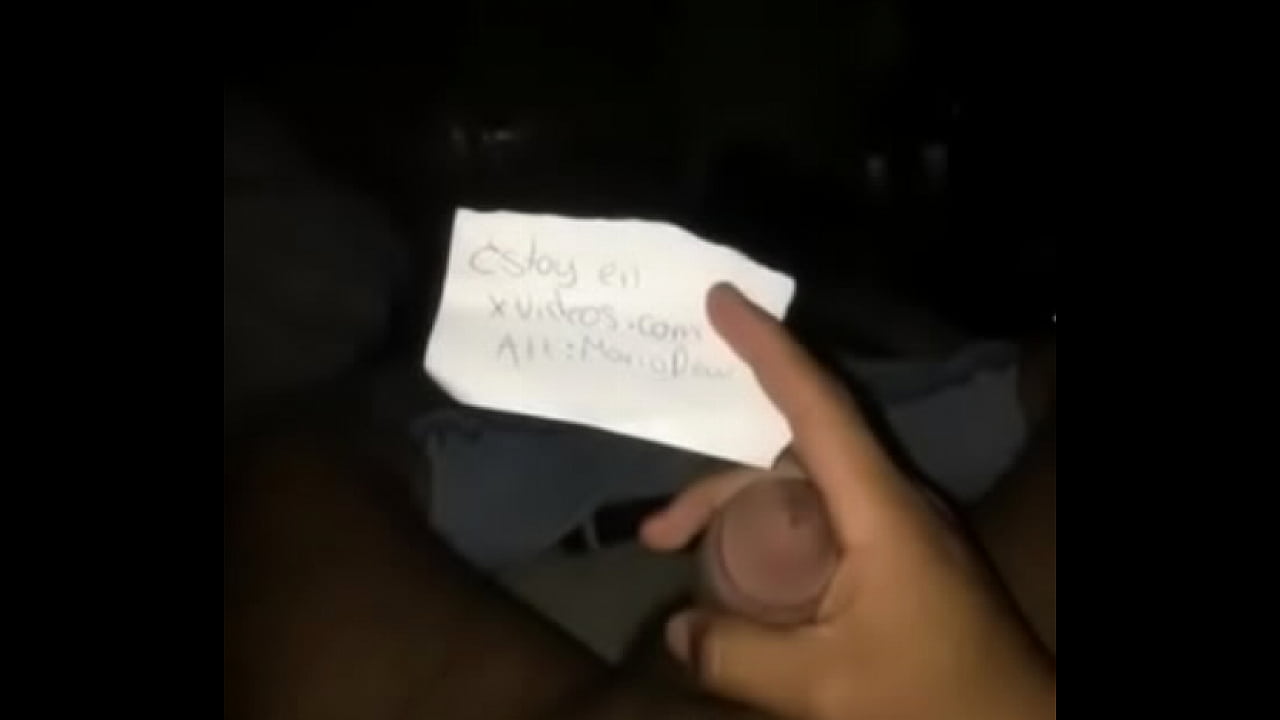 Estoy en
xvideos.com
Att: Mario